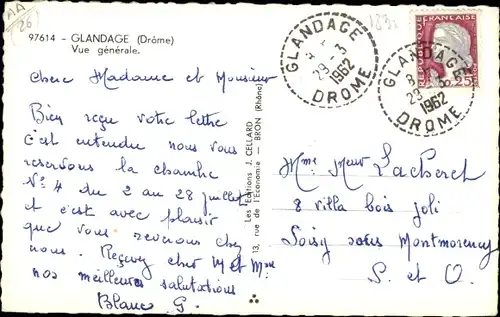 AA
26
183
97614 - GLANDAGE (Drôme)
Vue générale.
Chers Madame et Monsieur
Bien reçu votre lettre
c'est entendu nous vous
reservons la chambre
N° 4 du 2 au 28 juillet
et c'est avec plaisir
que vous revenons chez
nous. Recevez cher M et Mme
nos meilleures salutations
Blanc G.
Les Editions J. CELLARD
13, rue de l'Economie - BRON (Rhône)
GLANDAGE
29-3
1962
DROME
REPUBLIQUE FRANÇAISE
0,25
GLANDAGE
29-3
1962
DROME
Mme Meur Lacheret
8 villa bois joli
Soisy sous Montmorency
S. et O.